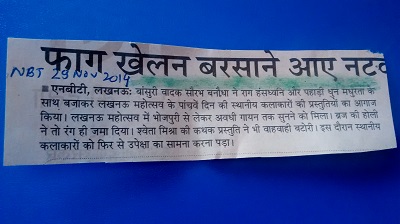 फाग खेलन बरसाने आए नटव
NBT 29 NOV 2014
■ एनबीटी, लखनऊ: बांसुरी वादक सौरभ बनौधा ने राग हंसध्वनि और पहाड़ी धुन मधुरता के
साथ बजाकर लखनऊ महोत्सव के पांचवें दिन की स्थानीय कलाकारों की प्रस्तुतियों का आगाज
किया। लखनऊ महोत्सव में भोजपुरी से लेकर अवधी गायन तक सुनने को मिला। ब्रज की होली
ने तो रंग ही जमा दिया। श्वेता मिश्रा की कथक प्रस्तुति ने भी वाहवाही बटोरी। इस दौरान स्थानीय
कलाकारों को फिर से उपेक्षा का सामना करना पड़ा।